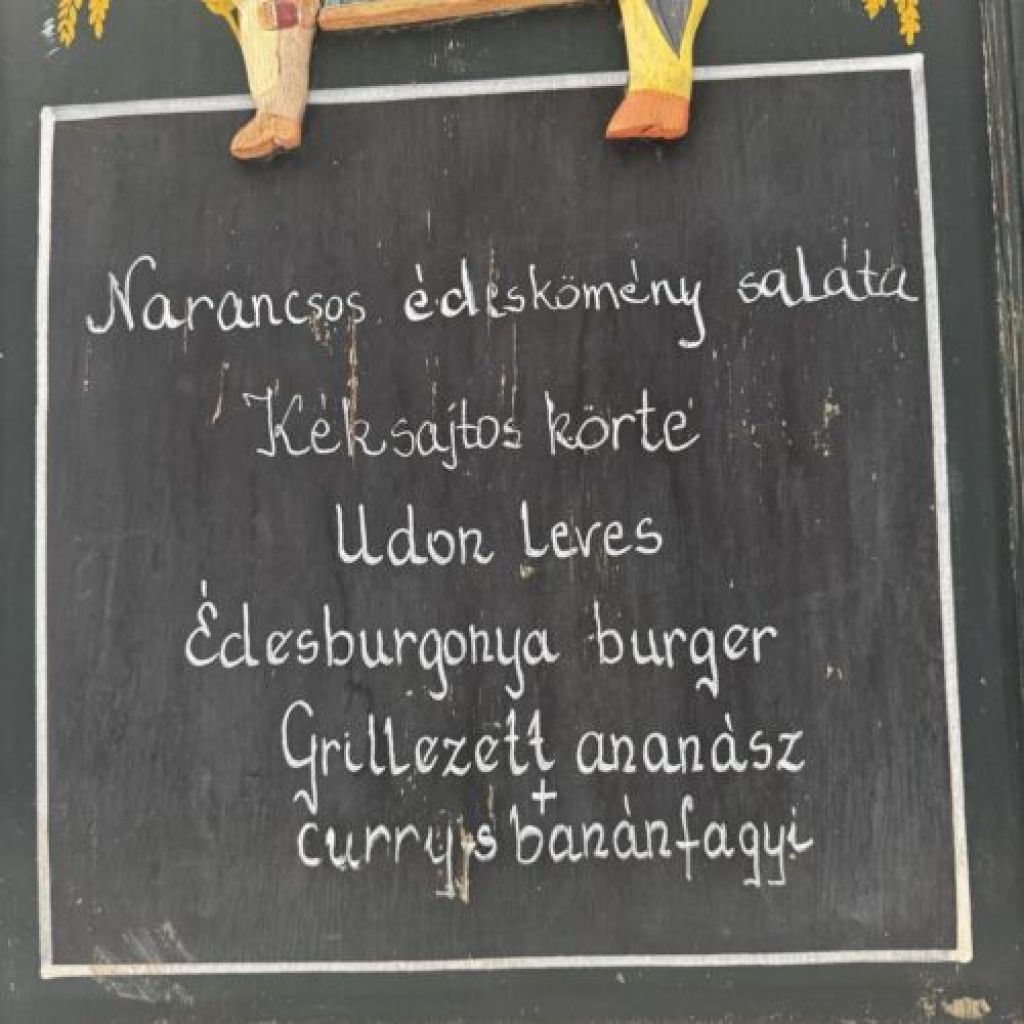 Narancsos édeskömény saláta
Kéksajtos körte
Udon Leves
Édesburgonya burger
Grillezett ananász
+
curry-s banánfagyi